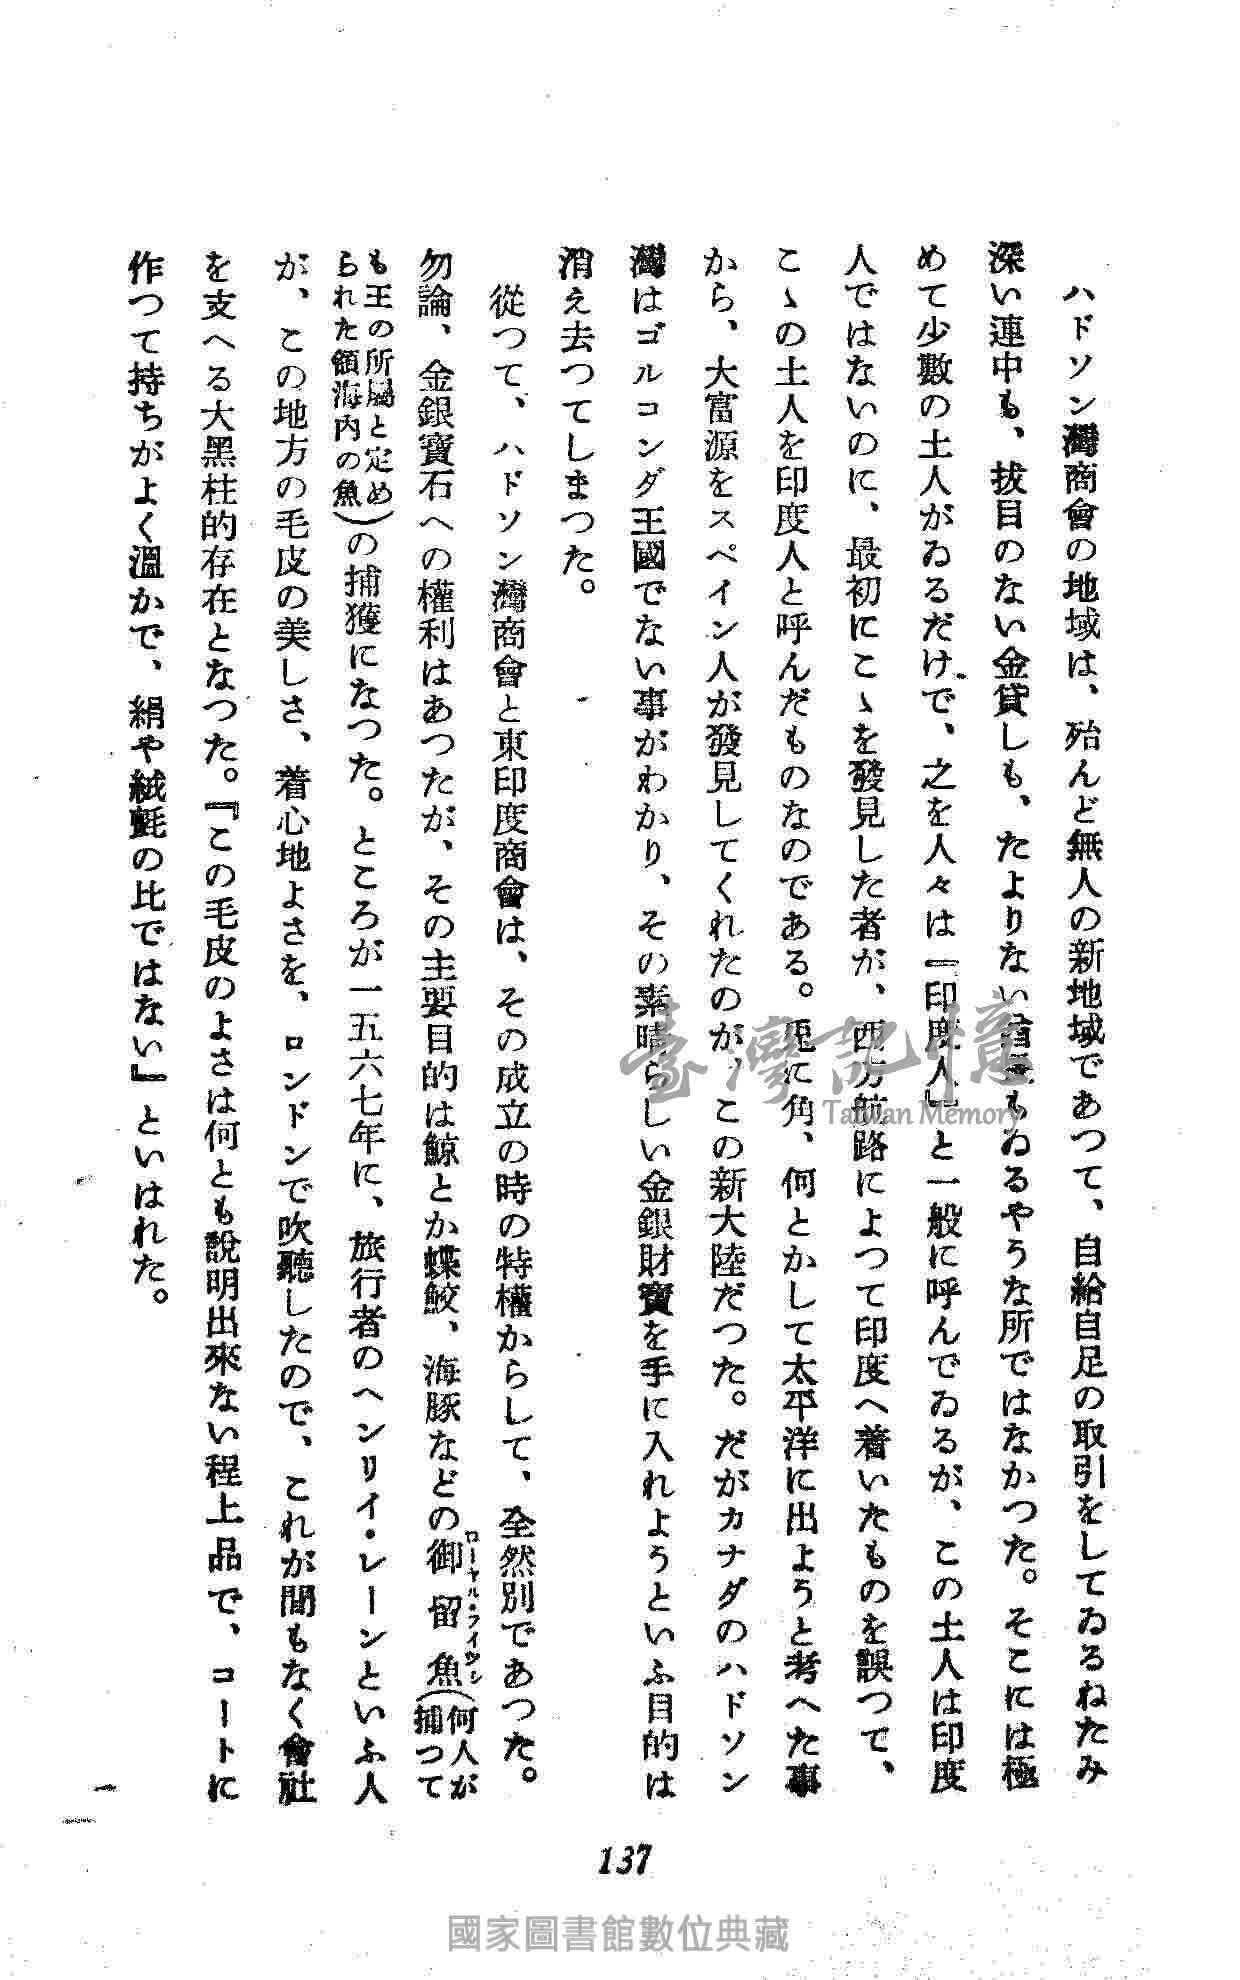 ハドソン灣商會の地域は、殆んど無人の新地域であつて、自給自足の取引をしてゐるねたみ
深い連中も、拔目のない金貸しも、たよりない もゐるやうな所ではなかつた。そこには極
めて少數の土人がゐるだけで、之を人々は『印度人』と一般に呼んでゐるが、この土人は印度
人ではないのに、最初にこゝを發見した者が、西方航路によつて印度へ着いたものを誤つて、
こゝの土人を印度人と呼んだものなのである。兎に角、何とかして太平洋に出ようと考へた事
から、大富源をスペイン人が發見してくれたのが、この新大陸だつた。だがカナダのハドソン
灣はゴルコンダ王國でない事がわかり、その素晴らしい金銀財寶を手に入れようといふ目的は
消え去つてしまつた。
從つて、ハドソン灣商會と東印度商會は、その成立の時の特權からして、全然別であつた。
勿論、金銀寶石への權利はあつたが、その主要目的は鯨とか蝶鮫、海豚などの御留魚(何人が捕つて
ローヤル・フイツシ
も王の所屬と定められた領海內の魚)の捕獲になつた。ところが一五六七年に、旅行者のヘンリイ・レーンといふ人
が、この地方の毛皮の美しさ、着心地よさを、ロンドンで吹聽したので、これが間もなく會社
を支へる大黑柱的存在となつた。『この毛皮のよさは何とも說明出來ない程上品で、コートに
作つて持ちがよく溫かで、絹や絨氈の比ではない』といはれた。
137
臺灣記憶
Taiwan Memory
國家圖書館數位典藏